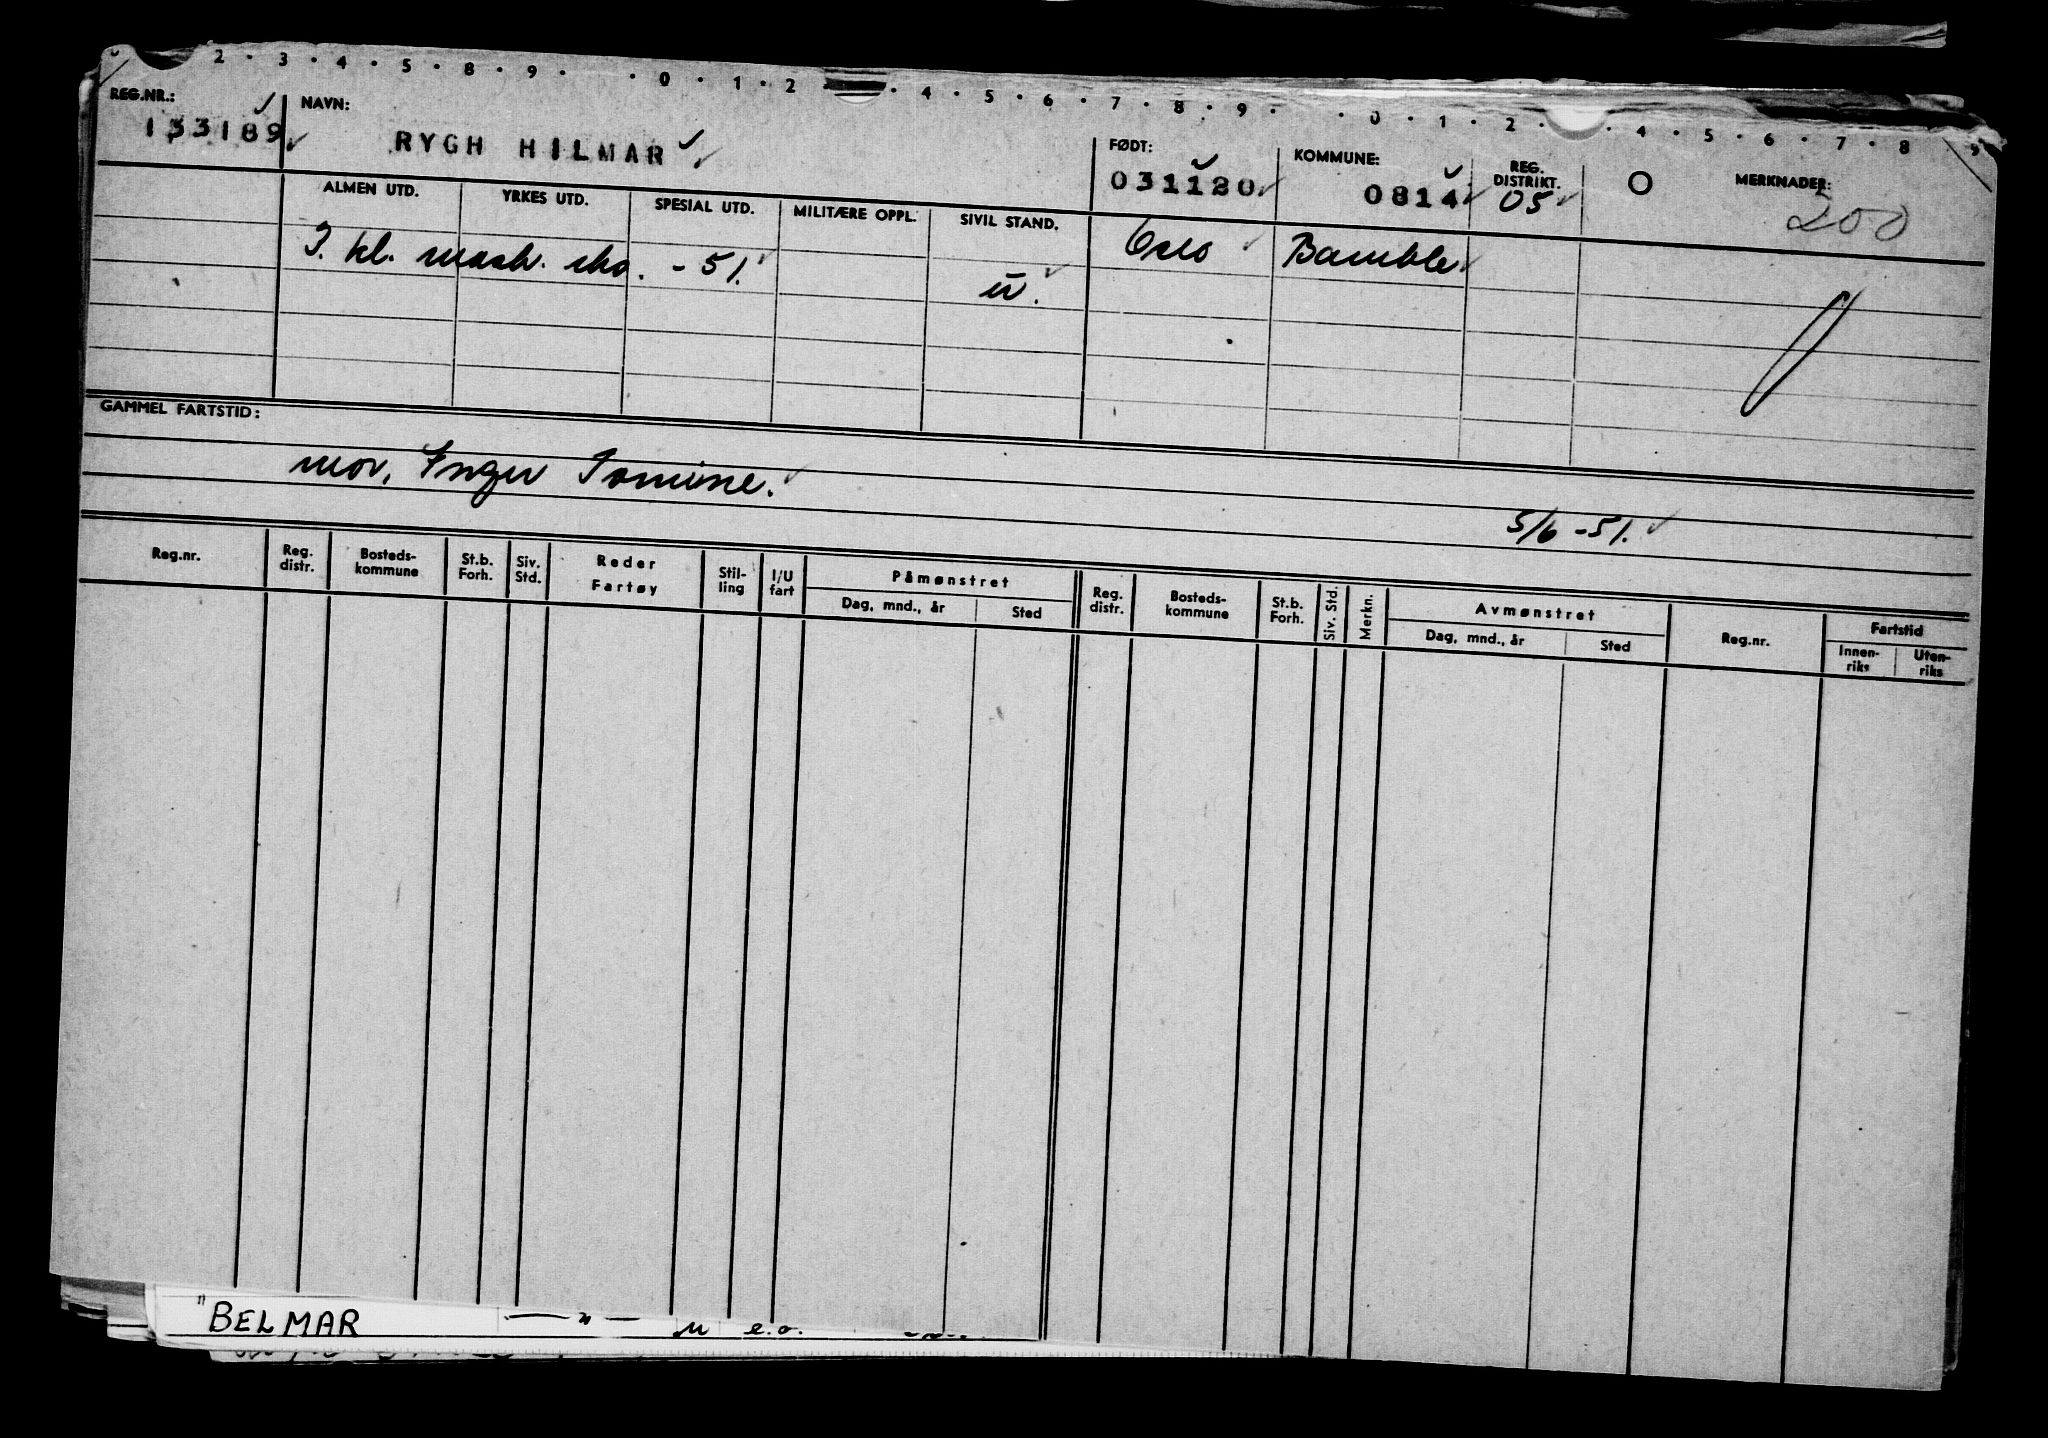 2 · 3 · 4 · 5 · 8 · 9 · · 0 · 1 · 2 · 4 · 5 · 6 · 7 · 8 · 9 · · 0 · 1 · 2 · 4 · 5 · 6 · 7 · 8 9
REG.NR.: NAVN: FØDT: KOMMUNE: REG. DISTRIKT. O MERKNADER:
133189 RYGH HILMAR 031120 0814 05 200
ALMEN UTD. YRKES UTD. SPESIAL UTD. MILITÆRE OPPL. SIVIL STAND.
I. kl. mask. sko. - 51. u. Oslo Bamble
GAMMEL FARTSTID:
mor, Inger Jomine.
5/6 - 51.
Reg.nr. Reg. distr. Bosteds- kommune St.b. Forh. Siv. Std. Reder Fartøy Stil- ling I/U fart Påmønstret Reg. distr. Bosteds- kommune St.b. Forh. Siv. Std. Merkn. Avmønstret Reg.nr. Fartstid
Dag, mnd., år Sted Dag, mnd., år Sted Innen- riks Uten- riks
"BELMAR